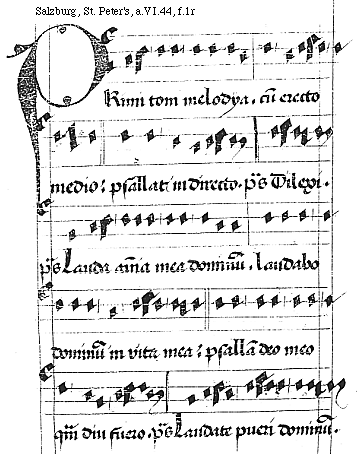 Salzburg, St. Peter's, a.VI.44, f.1r
PRimi toni melodya. cū erecto
medio: psallat in directo. p̄s Dilexi.
p̄s Lauda aīa mea dominū. laudabo
dominū in vita mea: psallā deo meo
qm̄ diu fuero. p̄s Laudate pueri dominū.